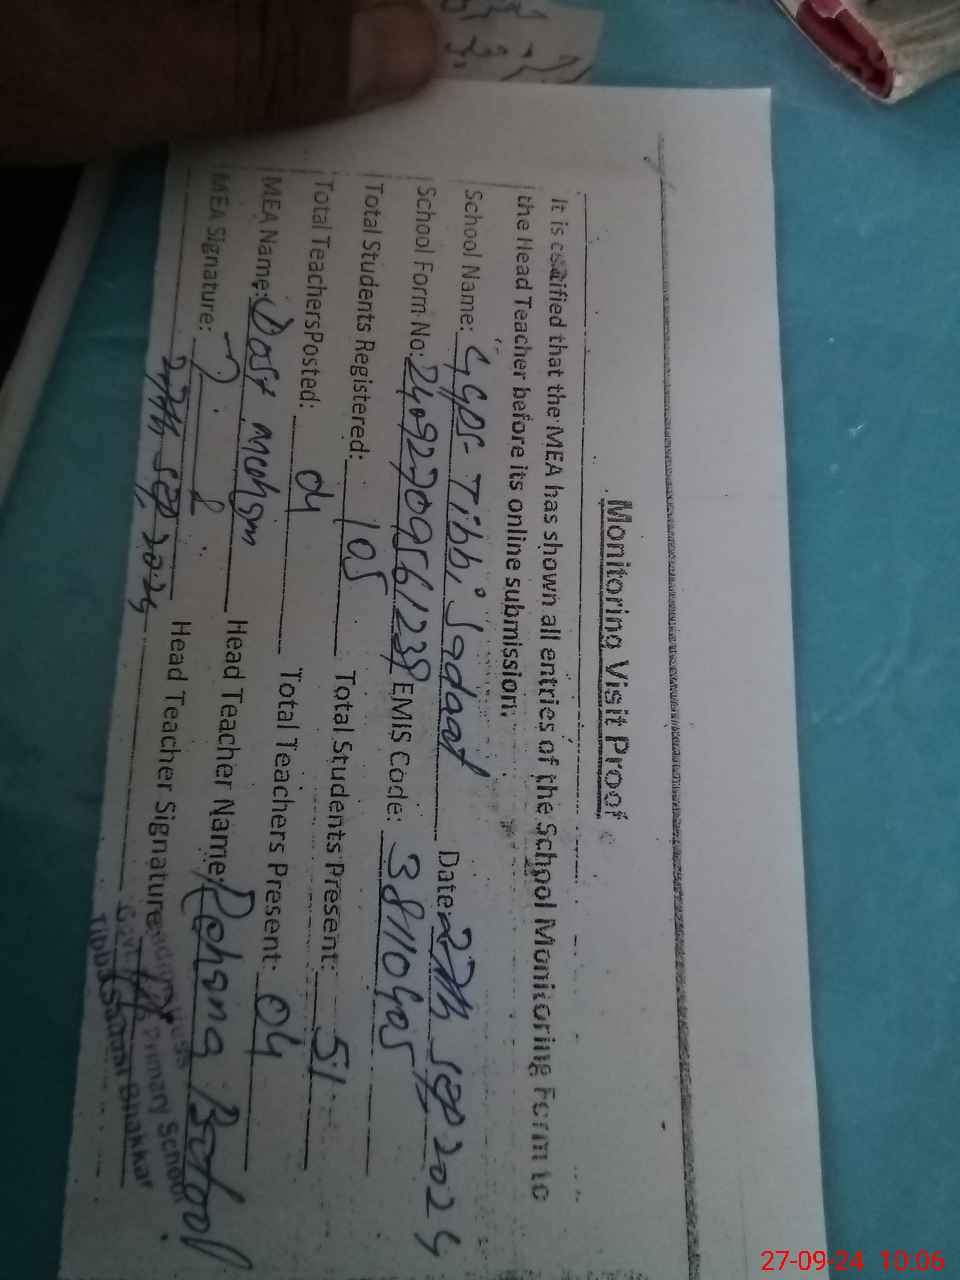 Monitoring Visit Proof
It is certified that the MEA has shown all entries of the School Monitoring Form to
the Head Teacher before its online submission.
School Name: GGPS- Tibbi Sadaat Date: 27th Sep 2024
School Form No: EMIS Code: 38110405
Total Students Registered: 105 Total Students Present: 51
Total TeachersPosted: 04 Total Teachers Present: 04
MEA Name: Dost Head Teacher Name: Batool
MEA Signature: Head Teacher Signature:
27th Sep 2024
Govt. Primary School
Tibbi Sadaat Bhakkar
27-09-24 10:06